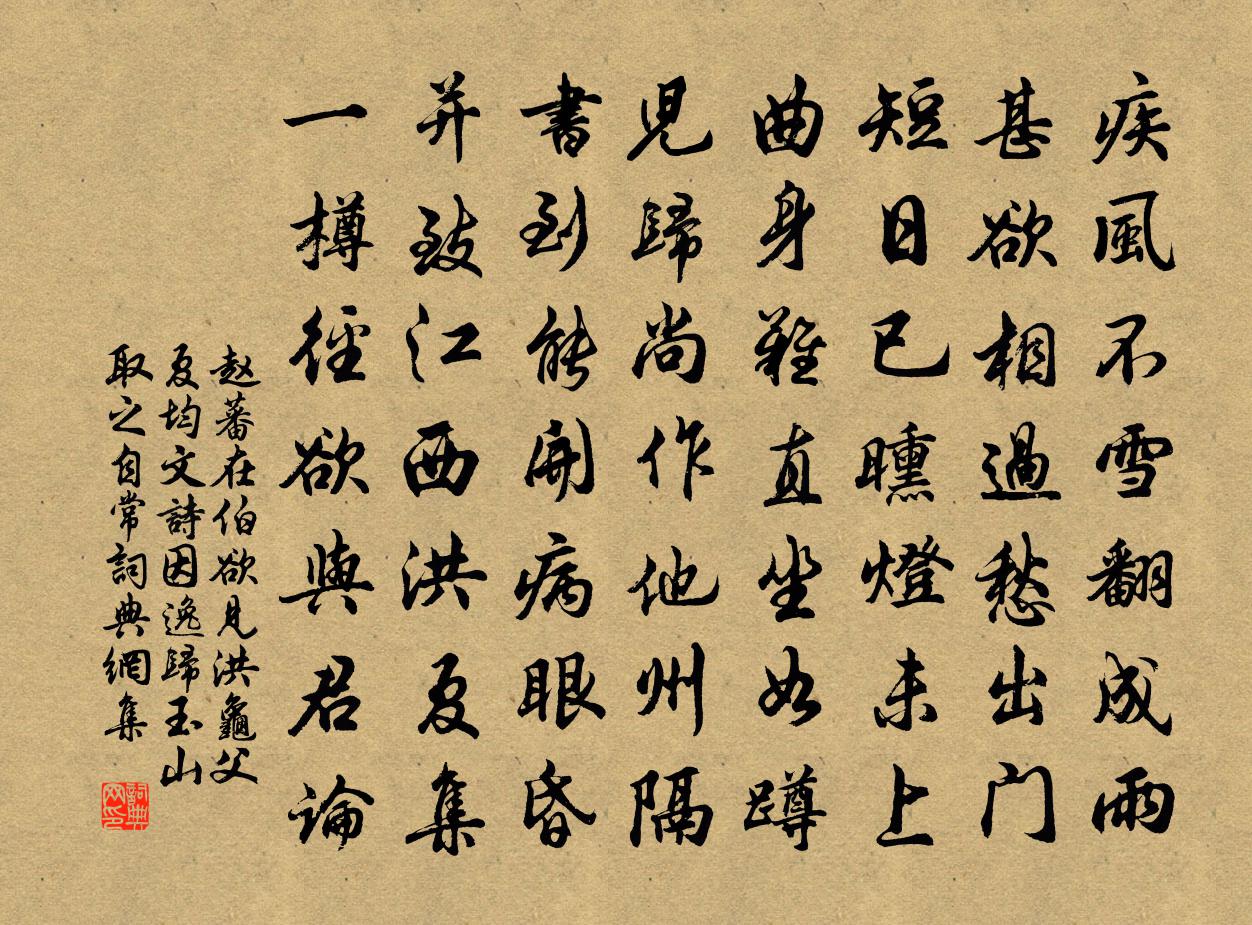 疾風不雪翻成雨
甚欲相過愁出门
短日已曛燈未上
曲身難直坐如蹲
児歸尚作他州隔
書到能開病眼昏
并致江西洪夏集
一樽徑欲與君論
赵蕃在伯欲見洪龜父
夏均文詩因逸歸玉山
取之自常詞典網集
詞典网印